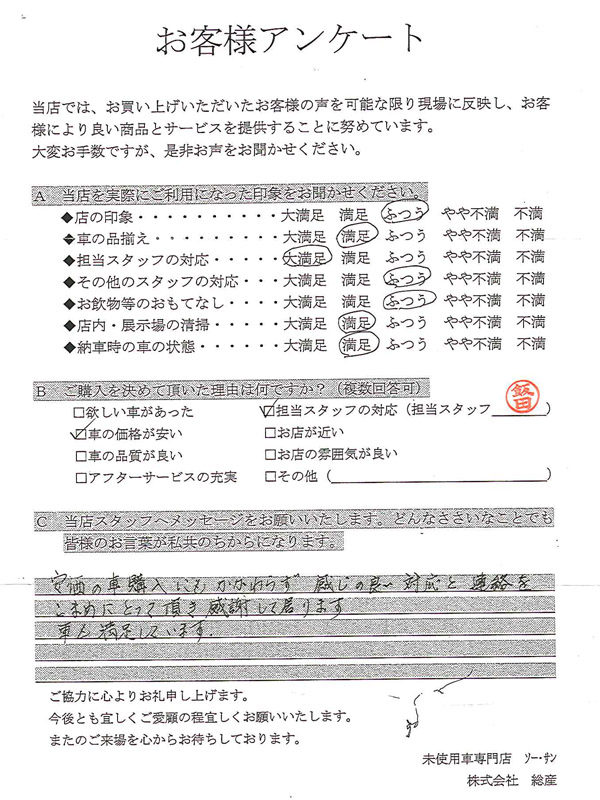 お客様アンケート
当店では、お買い上げいただいたお客様の声を可能な限り現場に反映し、お客
様により良い商品とサービスを提供することに努めています。
大変お手数ですが、是非お声をお聞かせください。
A　当店を実際にご利用になった印象をお聞かせください。
◆店の印象・・・・・・・・・・大満足　満足　ふつう　やや不満　不満
◆車の品揃え・・・・・・・・・大満足　満足　ふつう　やや不満　不満
◆担当スタッフの対応・・・・・大満足　満足　ふつう　やや不満　不満
◆その他のスタッフの対応・・・大満足　満足　ふつう　やや不満　不満
◆お飲物等のおもてなし・・・・大満足　満足　ふつう　やや不満　不満
◆店内・展示場の清掃・・・・・大満足　満足　ふつう　やや不満　不満
◆納車時の車の状態・・・・・・大満足　満足　ふつう　やや不満　不満
B　ご購入を決めて頂いた理由は何ですか？（複数回答可）
□欲しい車があった　☑担当スタッフの対応（担当スタッフ　飯田　）
☑車の価格が安い　□お店が近い
□車の品質が良い　□お店の雰囲気が良い
□アフターサービスの充実　□その他（　　　）
C　当店スタッフへメッセージをお願いいたします。どんなささいなことでも
皆様のお言葉が私共のちからになります。
安価の車購入にもかかわらず 感じの良い対応と連絡を
こまめにとって頂き感謝して居ります
車も満足しています.
ご協力に心よりお礼申し上げます。
今後とも宜しくご愛顧の程宜しくお願いいたします。
またのご来場を心からお待ちしております。
未使用車専門店　ソー・サン
株式会社　総産